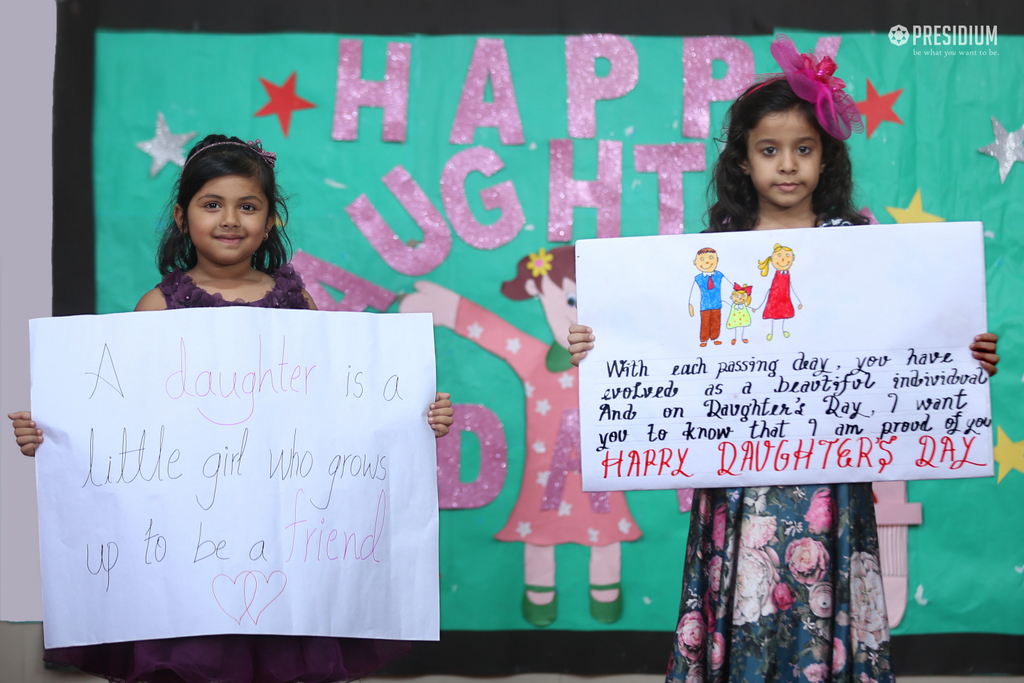 PRESIDIUM
be what you want to be.
HAPPY
AUGHT
DA
A daughter is a
little girl who grows
up to be a friend
With each passing day, you have
evolved as a beautiful individual
And on Daughter's Day, I want
you to know that I am proud of you
HAPPY DAUGHTER'S DAY